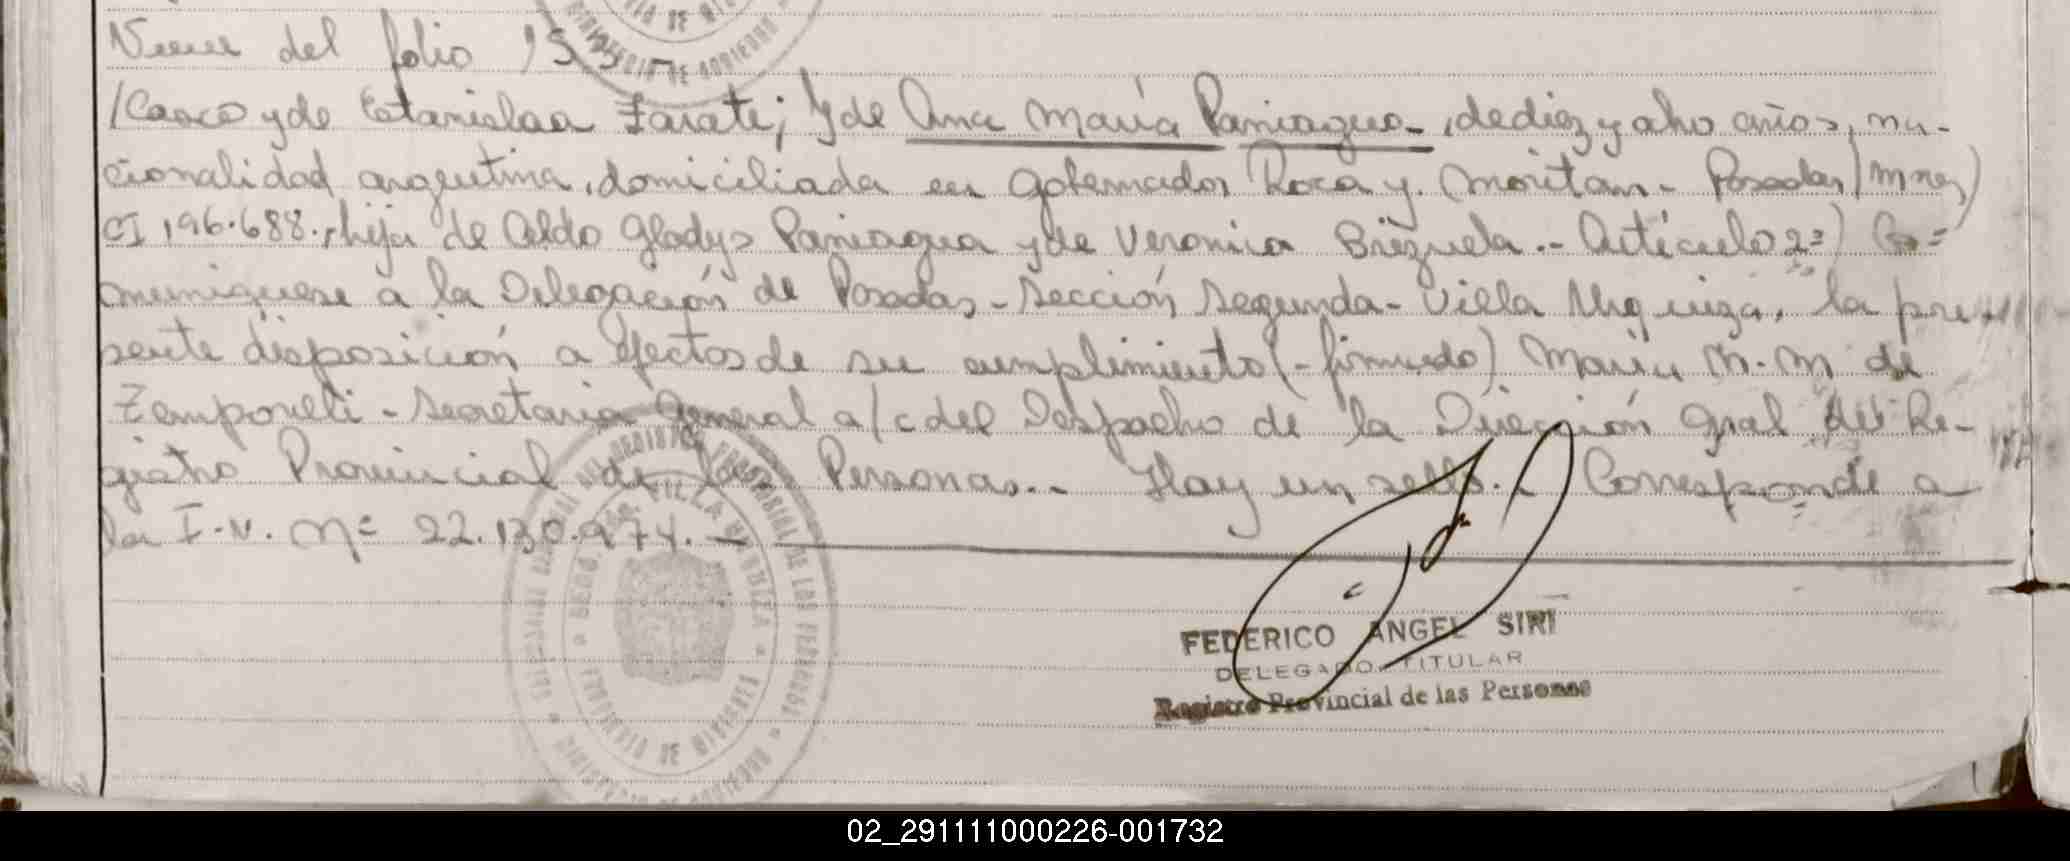 Viene del folio 155-
/Canco y de Estanislaa Zarate; y de Ana María Paniagua-, de diez y ocho años, na-
cionalidad argentina, domiciliada en Gobernador Roca y Moritan- Posadas (Mnes)
CI 196.688., hija de Aldo Gladys Paniagua y de Veronica Brizuela.- Artículo 2º) Co=
muniquese a la Delegación de Posadas - Sección Segunda - Villa Urquiza, la pre
sente disposición a efectos de su cumplimiento (-firmado) María M. M de
Zemporelli - Secretaria General a/c del Despacho de la Dirección Gral del Re-
gistro Provincial de las Personas.- Hay un sello.- Corresponde a
la I.N. Nº 22.130.974.-
FEDERICO ANGEL SIRI
DELEGADO TITULAR
Registro Provincial de las Personas
02_291111000226-001732